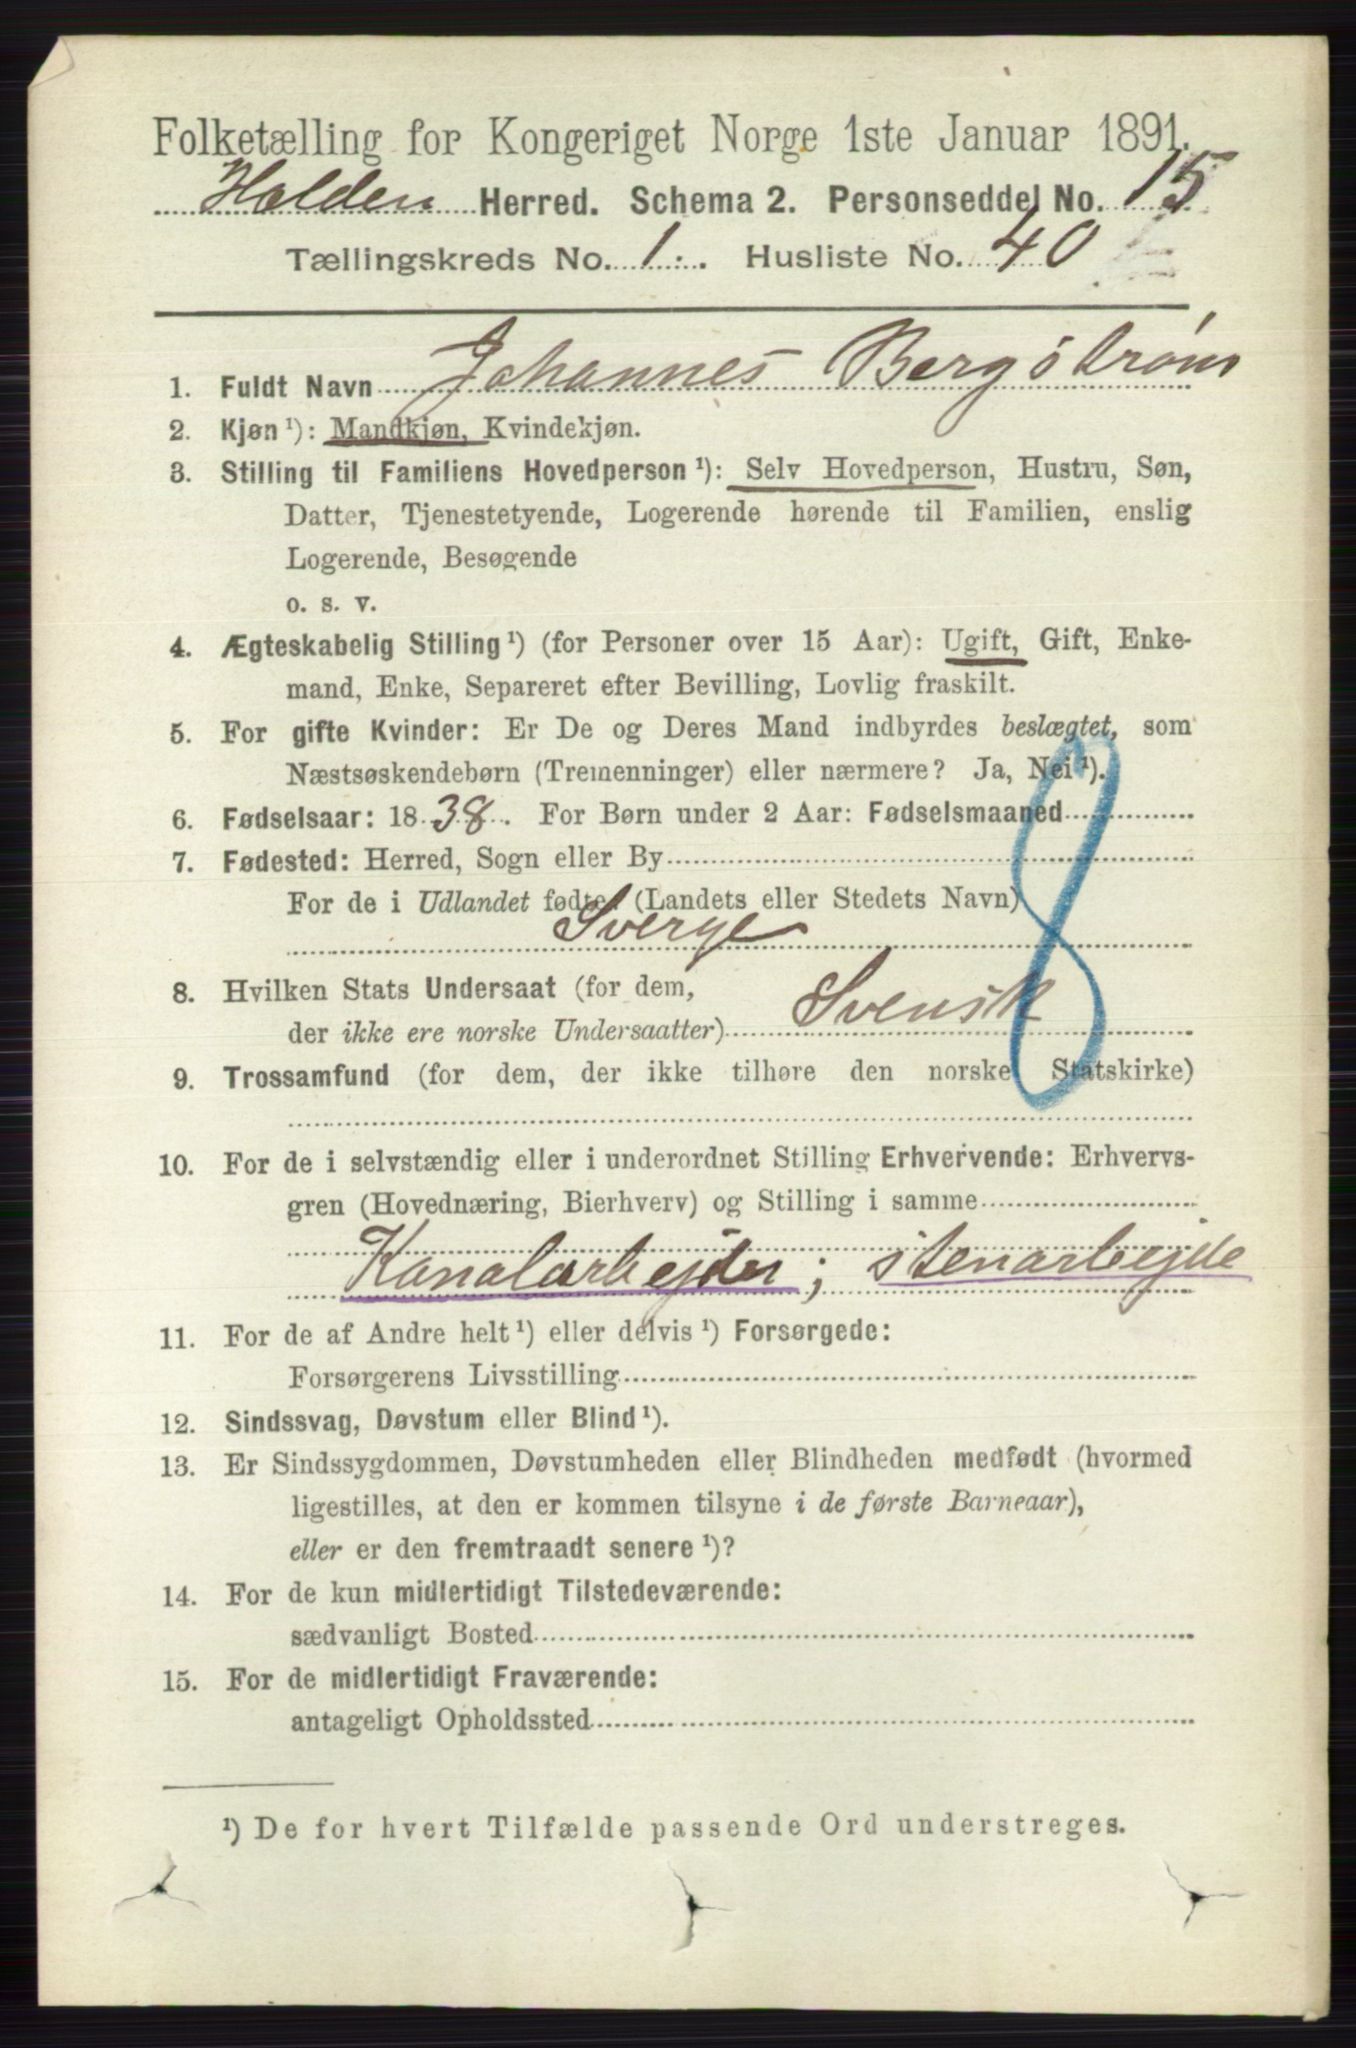 Folketælling for Kongeriget Norge 1ste Januar 1891.
Holden Herred. Schema 2. Personseddel No. 15
Tællingskreds No. 1. Husliste No. 40
1. Fuldt Navn Johannes Bergstrøm
2. Kjøn ¹): Mandkjøn, Kvindekjøn.
3. Stilling til Familiens Hovedperson ¹): Selv Hovedperson, Hustru, Søn,
Datter, Tjenestetyende, Logerende hørende til Familien, enslig
Logerende, Besøgende
o. s. v.
4. Ægteskabelig Stilling ¹) (for Personer over 15 Aar): Ugift, Gift, Enke-
mand, Enke, Separeret efter Bevilling, Lovlig fraskilt.
5. For gifte Kvinder: Er De og Deres Mand indbyrdes beslægtet, som
Næstsøskendebørn (Tremenninger) eller nærmere? Ja, Nei ¹).
6. Fødselsaar: 1838. For Børn under 2 Aar: Fødselsmaaned
7. Fødested: Herred, Sogn eller By
For de i Udlandet fødte (Landets eller Stedets Navn)
Sverge
8. Hvilken Stats Undersaat (for dem,
der ikke ere norske Undersaatter) Svensk
8
9. Trossamfund (for dem, der ikke tilhøre den norske Statskirke)
10. For de i selvstændig eller i underordnet Stilling Erhvervende: Erhvervs-
gren (Hovednæring, Bierhverv) og Stilling i samme
Kanalarbejder; stenarbejde
11. For de af Andre helt ¹) eller delvis ¹) Forsørgede:
Forsørgerens Livsstilling
12. Sindssvag, Døvstum eller Blind ¹).
13. Er Sindssygdommen, Døvstumheden eller Blindheden medfødt (hvormed
ligestilles, at den er kommen tilsyne i de første Barneaar),
eller er den fremtraadt senere ¹)?
14. For de kun midlertidigt Tilstedeværende:
sædvanligt Bosted
15. For de midlertidigt Fraværende:
antageligt Opholdssted
¹) De for hvert Tilfælde passende Ord understreges.